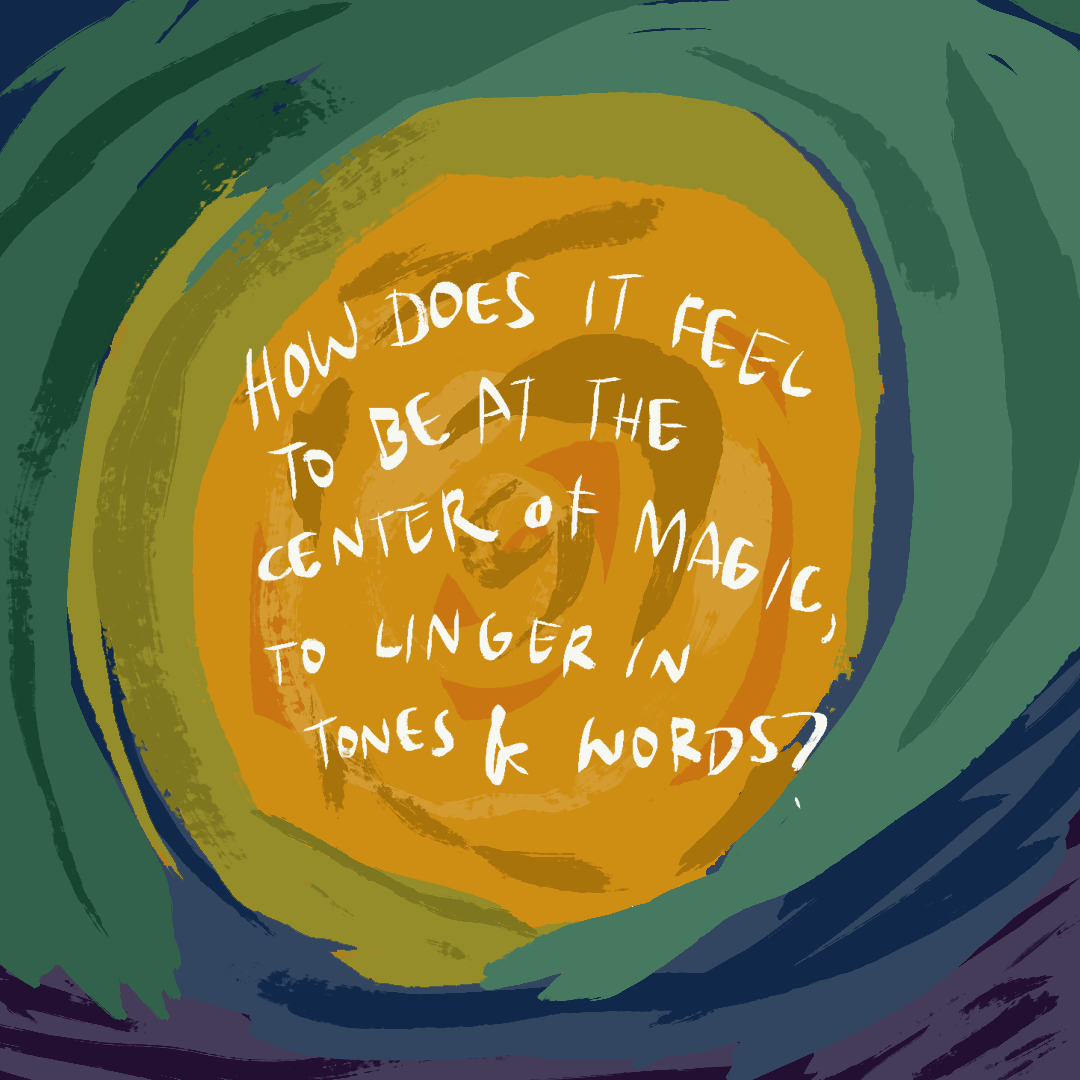 HOW DOES IT FEEL
TO BE AT THE
CENTER OF MAGIC,
TO LINGER IN
TONES & WORDS?